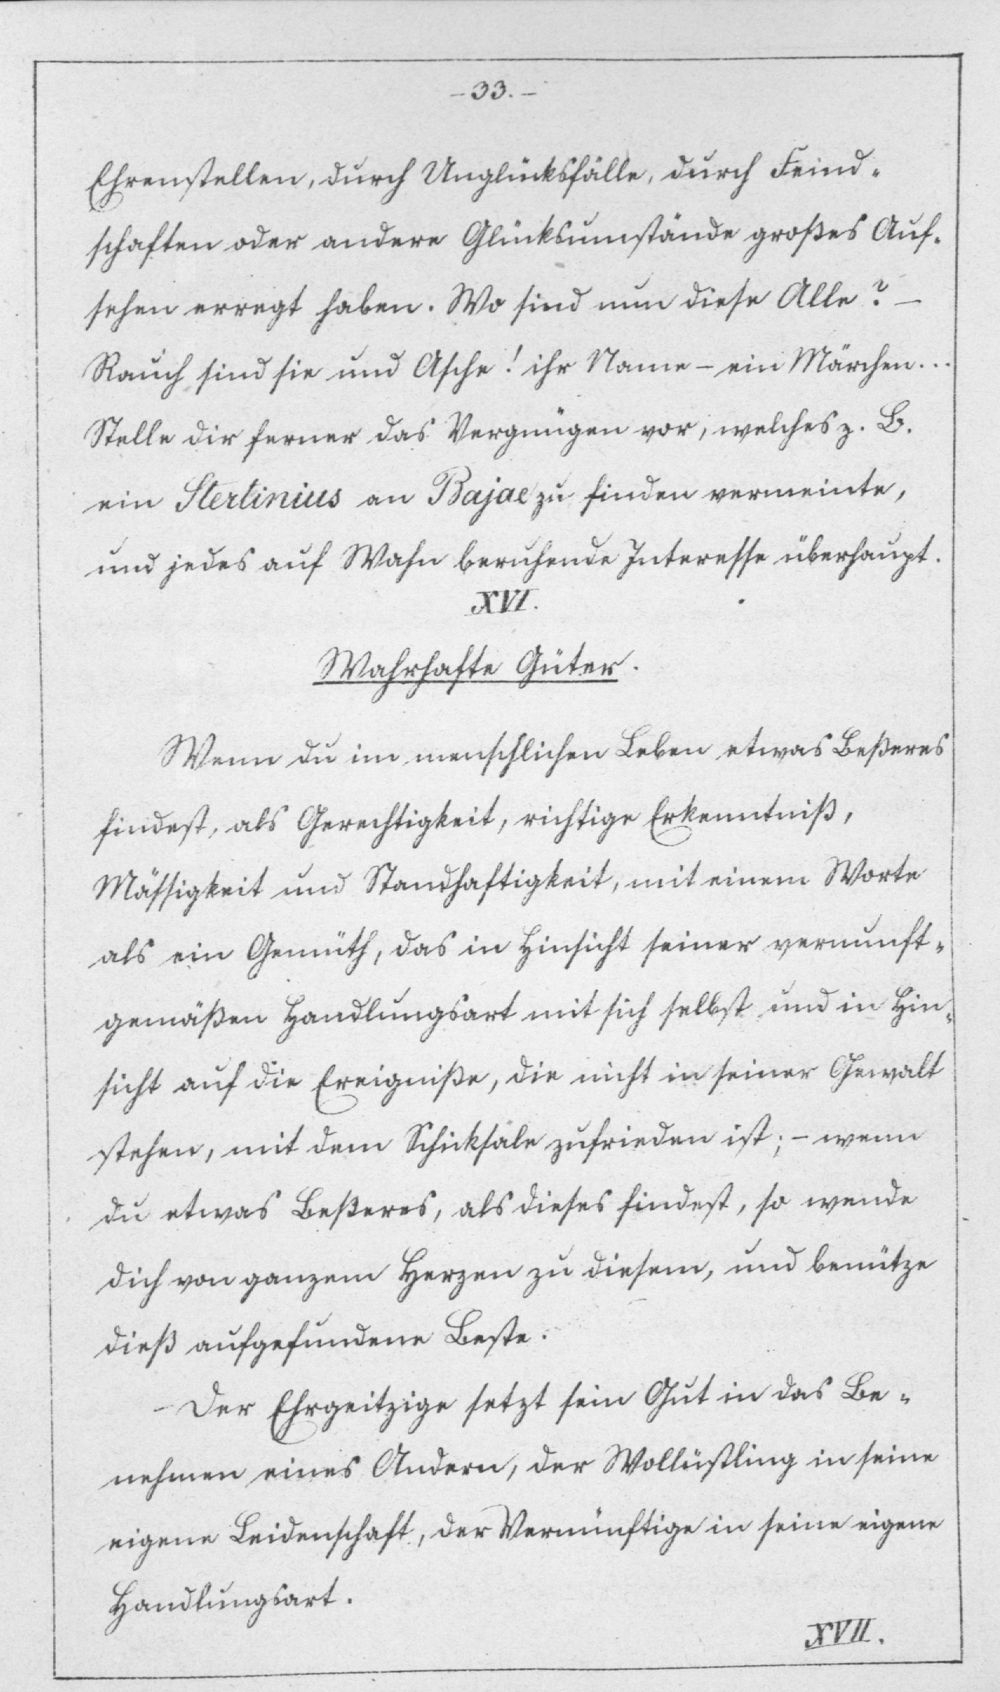 – 33. –
Ehrenstellen, durch Unglücksfälle, durch Feind-
schaften oder andere Glücksumstände großes Auf-
sehen erregt haben. Wo sind nun diese Alle? –
Rauch sind sie und Asche! ihr Name – ein Märchen...
Stelle dir ferner das Vergnügen vor, welches z. B.
ein Stertinius an Bajae zu finden vermeinte,
und jedes auf Wahn beruhende Interesse überhaupt.
XVI.
Wahrhafte Güter.
Wenn du im menschlichen Leben etwas Beßeres
findest, als Gerechtigkeit, richtige Erkenntniß,
Mässigkeit und Standhaftigkeit, mit einem Worte
als ein Gemüth, das in Hinsicht seiner vernunft-
gemäßen Handlungsart mit sich selbst und in Hin-
sicht auf die Ereigniße, die nicht in seiner Gewalt
stehen, mit dem Schicksale zufrieden ist; – wenn
du etwas Beßeres, als dieses findest, so wende
dich von ganzem Herzen zu diesem, und benütze
dieß aufgefundene Beste.
Der Ehrgeitzige setzt sein Gut in das Be-
nehmen eines Andern, der Wollüstling in seine
eigene Leidenschaft, der Vernünftige in seine eigene
Handlungsart.
XVII.